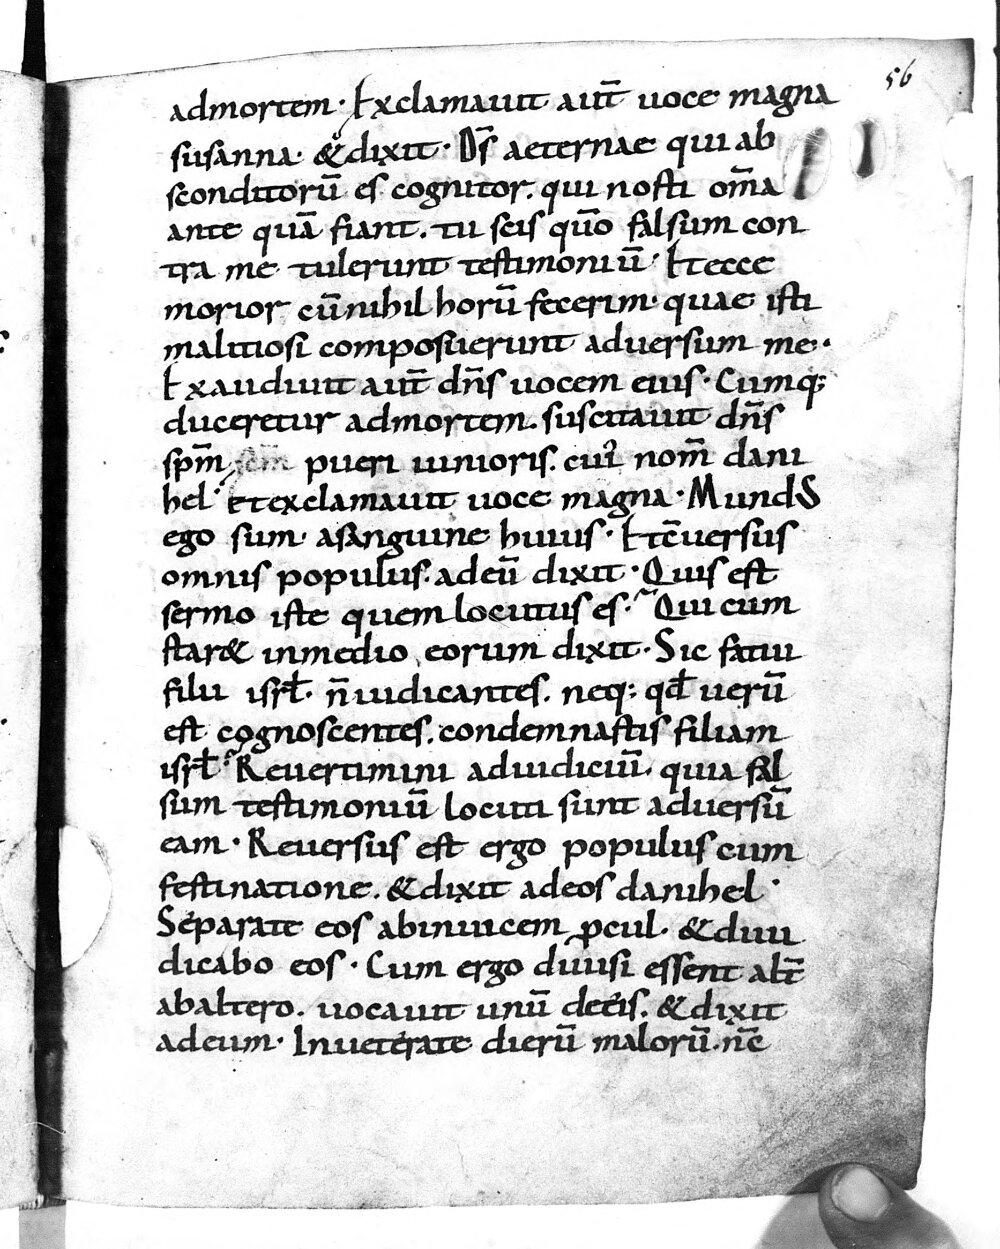 56
admortem· Exclamauit aut̄ uoce magna
susanna· &dixit· D̄s aeternae qui ab
sconditorū es cognitor. qui nosti om̄a
ante quā fiant. tu scis qūo falsum con
tra me tulerunt testimoniū· Et ecce
morior cū nihil horū fecerim· quae isti
malitiosi composuerunt aduersum me·
Exaudiuit aut̄ dn̄s uocem eius· Cumq;
duceretur admortem. suscitauit dn̄s
sp̄m sc̄m pueri iunioris. cui nom̄ dani
hel· Et exclamauit uoce magna· Mundus
ego sum asanguine huius· Et c̄uersus
omnis populus. adeū dixit· Quis est
sermo iste quem locutus es· Qui cum
star& inmedio eorum dixit· Sic fatui
filii isrl̄· n̄ iudicantes. neq; qđ uerū
est cognoscentes. condemnastis filiam
isrl̄· Reuertimini adiudiciū. quia fal
sum testimoniū locuti sunt aduersū
eam· Reuersus est ergo populus cum
festinatione. &dixit adeos danihel·
Separate eos abinuicem ꝓcul· &diiu
dicabo eos· Cum ergo diuisi essent alt̄
abaltero. uocauit unū deeis. &dixit
adeum· Inueterate dierū malorū. n̄c